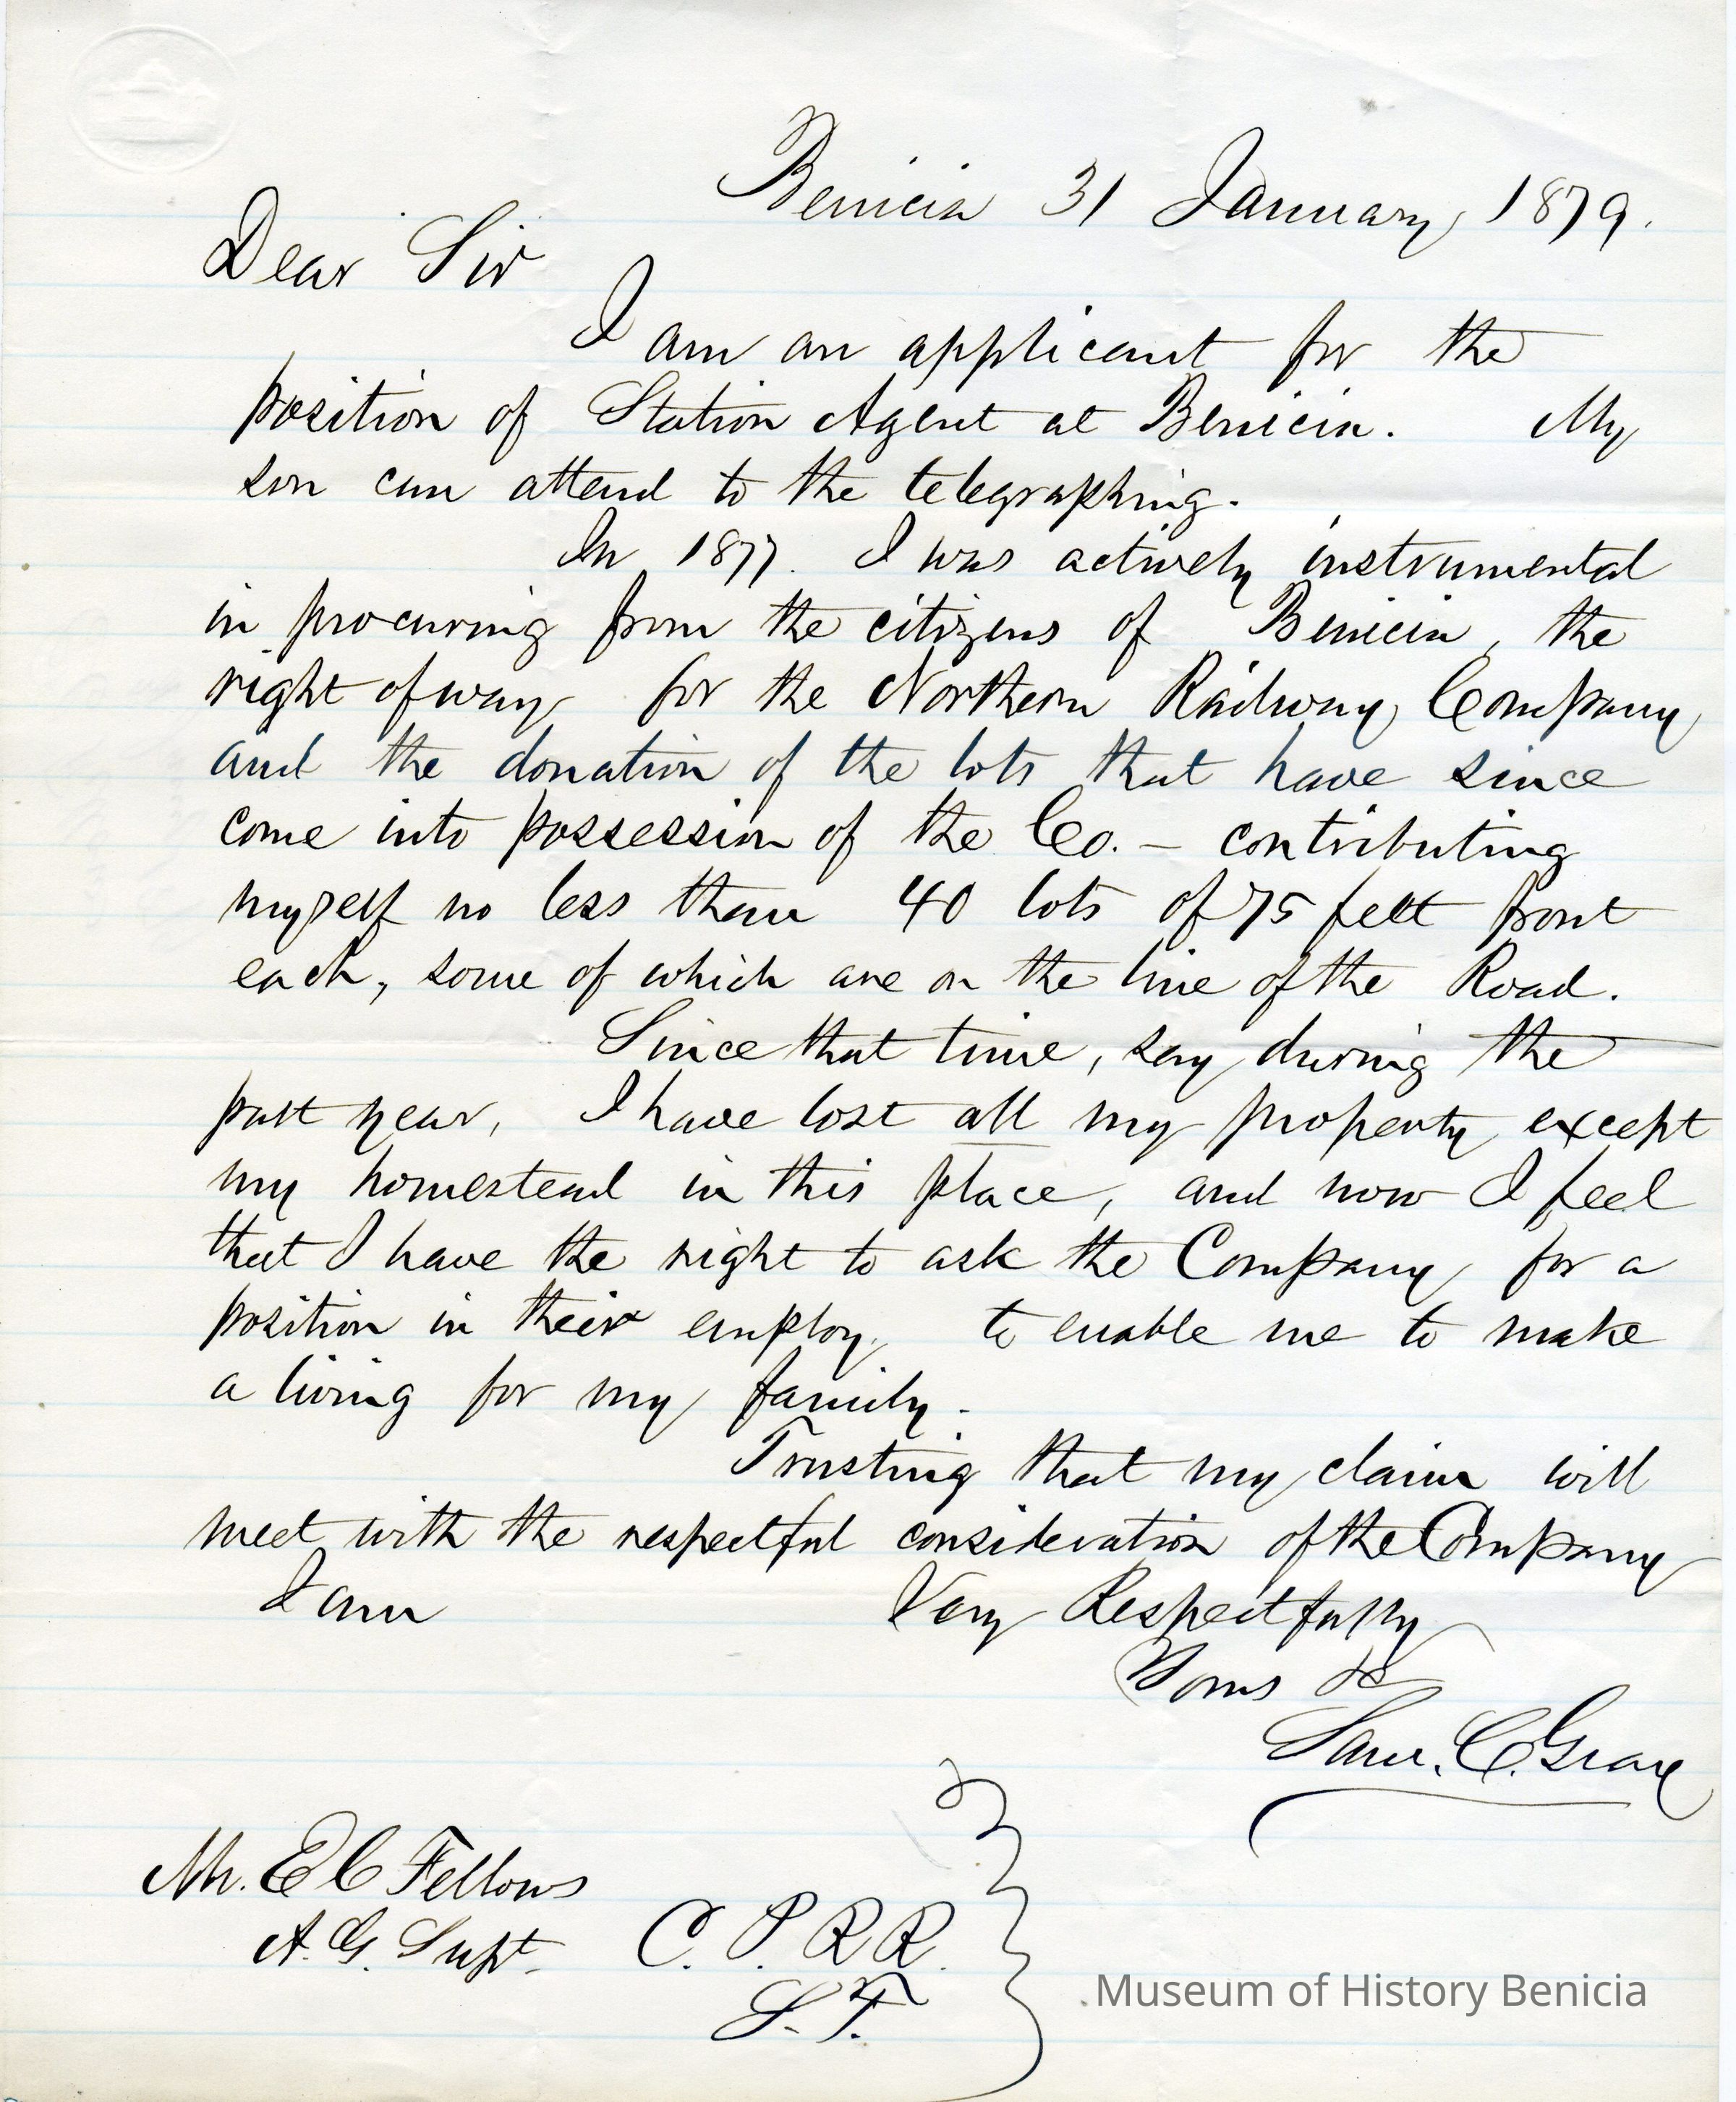 Benicia 31 January, 1879.
Dear Sir
I am an applicant for the
position of Station Agent at Benicia. My
son can attend to the telegraphing.
In 1877. I was actively instrumental
in procuring from the citizens of Benicia, the
right of way for the Northern Railway Company
and the donation of the lots that have since
come into possession of the Co. – contributing
myself no less than 40 lots of 75 feet front
each, some of which are on the line of the Road.
Since that time, say during the
past year, I have lost all my property except
my homestead in this place, and now I feel
that I have the right to ask the Company for a
position in their employ, to enable me to make
a living for my family.
Trusting that my claim will
meet with the respectful consideration of the Company
I am Very Respectfully
Yours &c
Sam. C. Gray
Mr. E C Fellows
A. G. Supt. C. P. R R.
S. F.
Museum of History Benicia